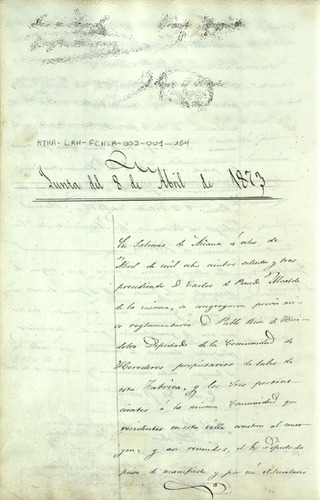 ATHA-LAH-FCHSA-003-001-154
Junta del 8 de Abril de 1873
En Salinas de Añana á ocho de
Abril de mil ocho cientos setenta y tres
presidiendo D. Carlos de Alcalde
de la misma, se congregaron previo avi-
so reglamentario D. Pablo de
Diputado de la Comunidad de
Herederos propietarios de Sales de
esta Fabrica, y los Sres pertene-
cientes á la misma Comunidad que
residentes en esta villa constan al mar-
gen, y asi reunidos, el Sr. Diputado
puso de manifiesto y por mi el Secretario